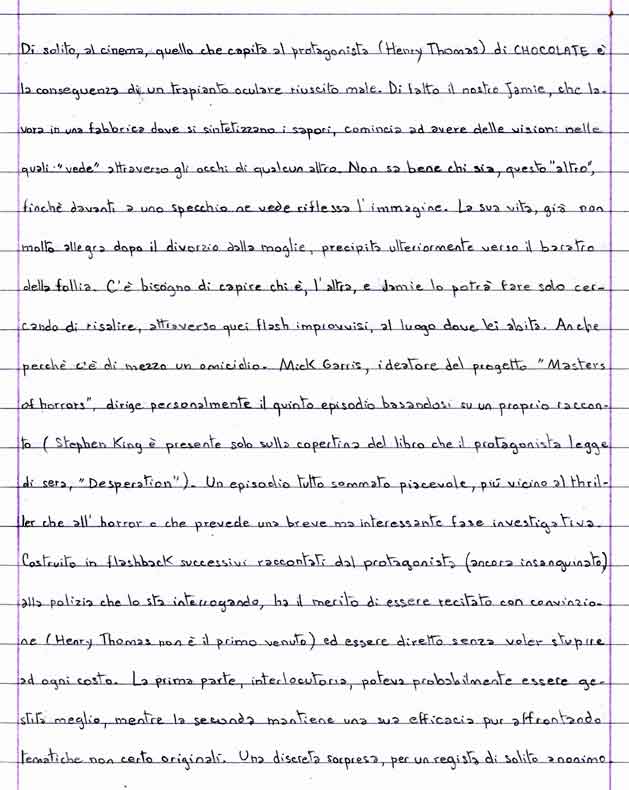 Di solito, al cinema, quello che capita al protagonista (Henry Thomas) di CHOCOLATE è
la conseguenza di un trapianto oculare riuscito male. Di fatto il nostro Jamie, che la-
vora in una fabbrica dove si sintetizzano i sapori, comincia ad avere delle visioni nelle
quali "vede" attraverso gli occhi di qualcun altro. Non sa bene chi sia, questo "altro",
finchè davanti a uno specchio ne vede riflessa l'immagine. La sua vita, già non
molto allegra dopo il divorzio dalla moglie, precipita ulteriormente verso il baratro
della follia. C'è bisogno di capire chi è, l'altra, e Jamie lo potrà fare solo cer-
cando di risalire, attraverso quei flash improvvisi, al luogo dove lei abita. Anche
perchè c'è di mezzo un omicidio. Mick Garris, ideatore del progetto "Masters
of horrors", dirige personalmente il quinto episodio basandosi su un proprio raccon-
to (Stephen King è presente solo sulla copertina del libro che il protagonista legge
di sera, "Desperation"). Un episodio tutto sommato piacevole, più vicino al thril-
ler che all'horror e che prevede una breve ma interessante fase investigativa.
Costruito in flashback successivi raccontati dal protagonista (ancora insanguinato)
alla polizia che lo sta interrogando, ha il merito di essere recitato con convinzio-
ne (Henry Thomas non è il primo venuto) ed essere diretto senza voler stupire
ad ogni costo. La prima parte, interlocutoria, poteva probabilmente essere ge-
stita meglio, mentre la seconda mantiene una sua efficacia pur affrontando
tematiche non certo originali. Una discreta sorpresa, per un regista di solito anonimo.